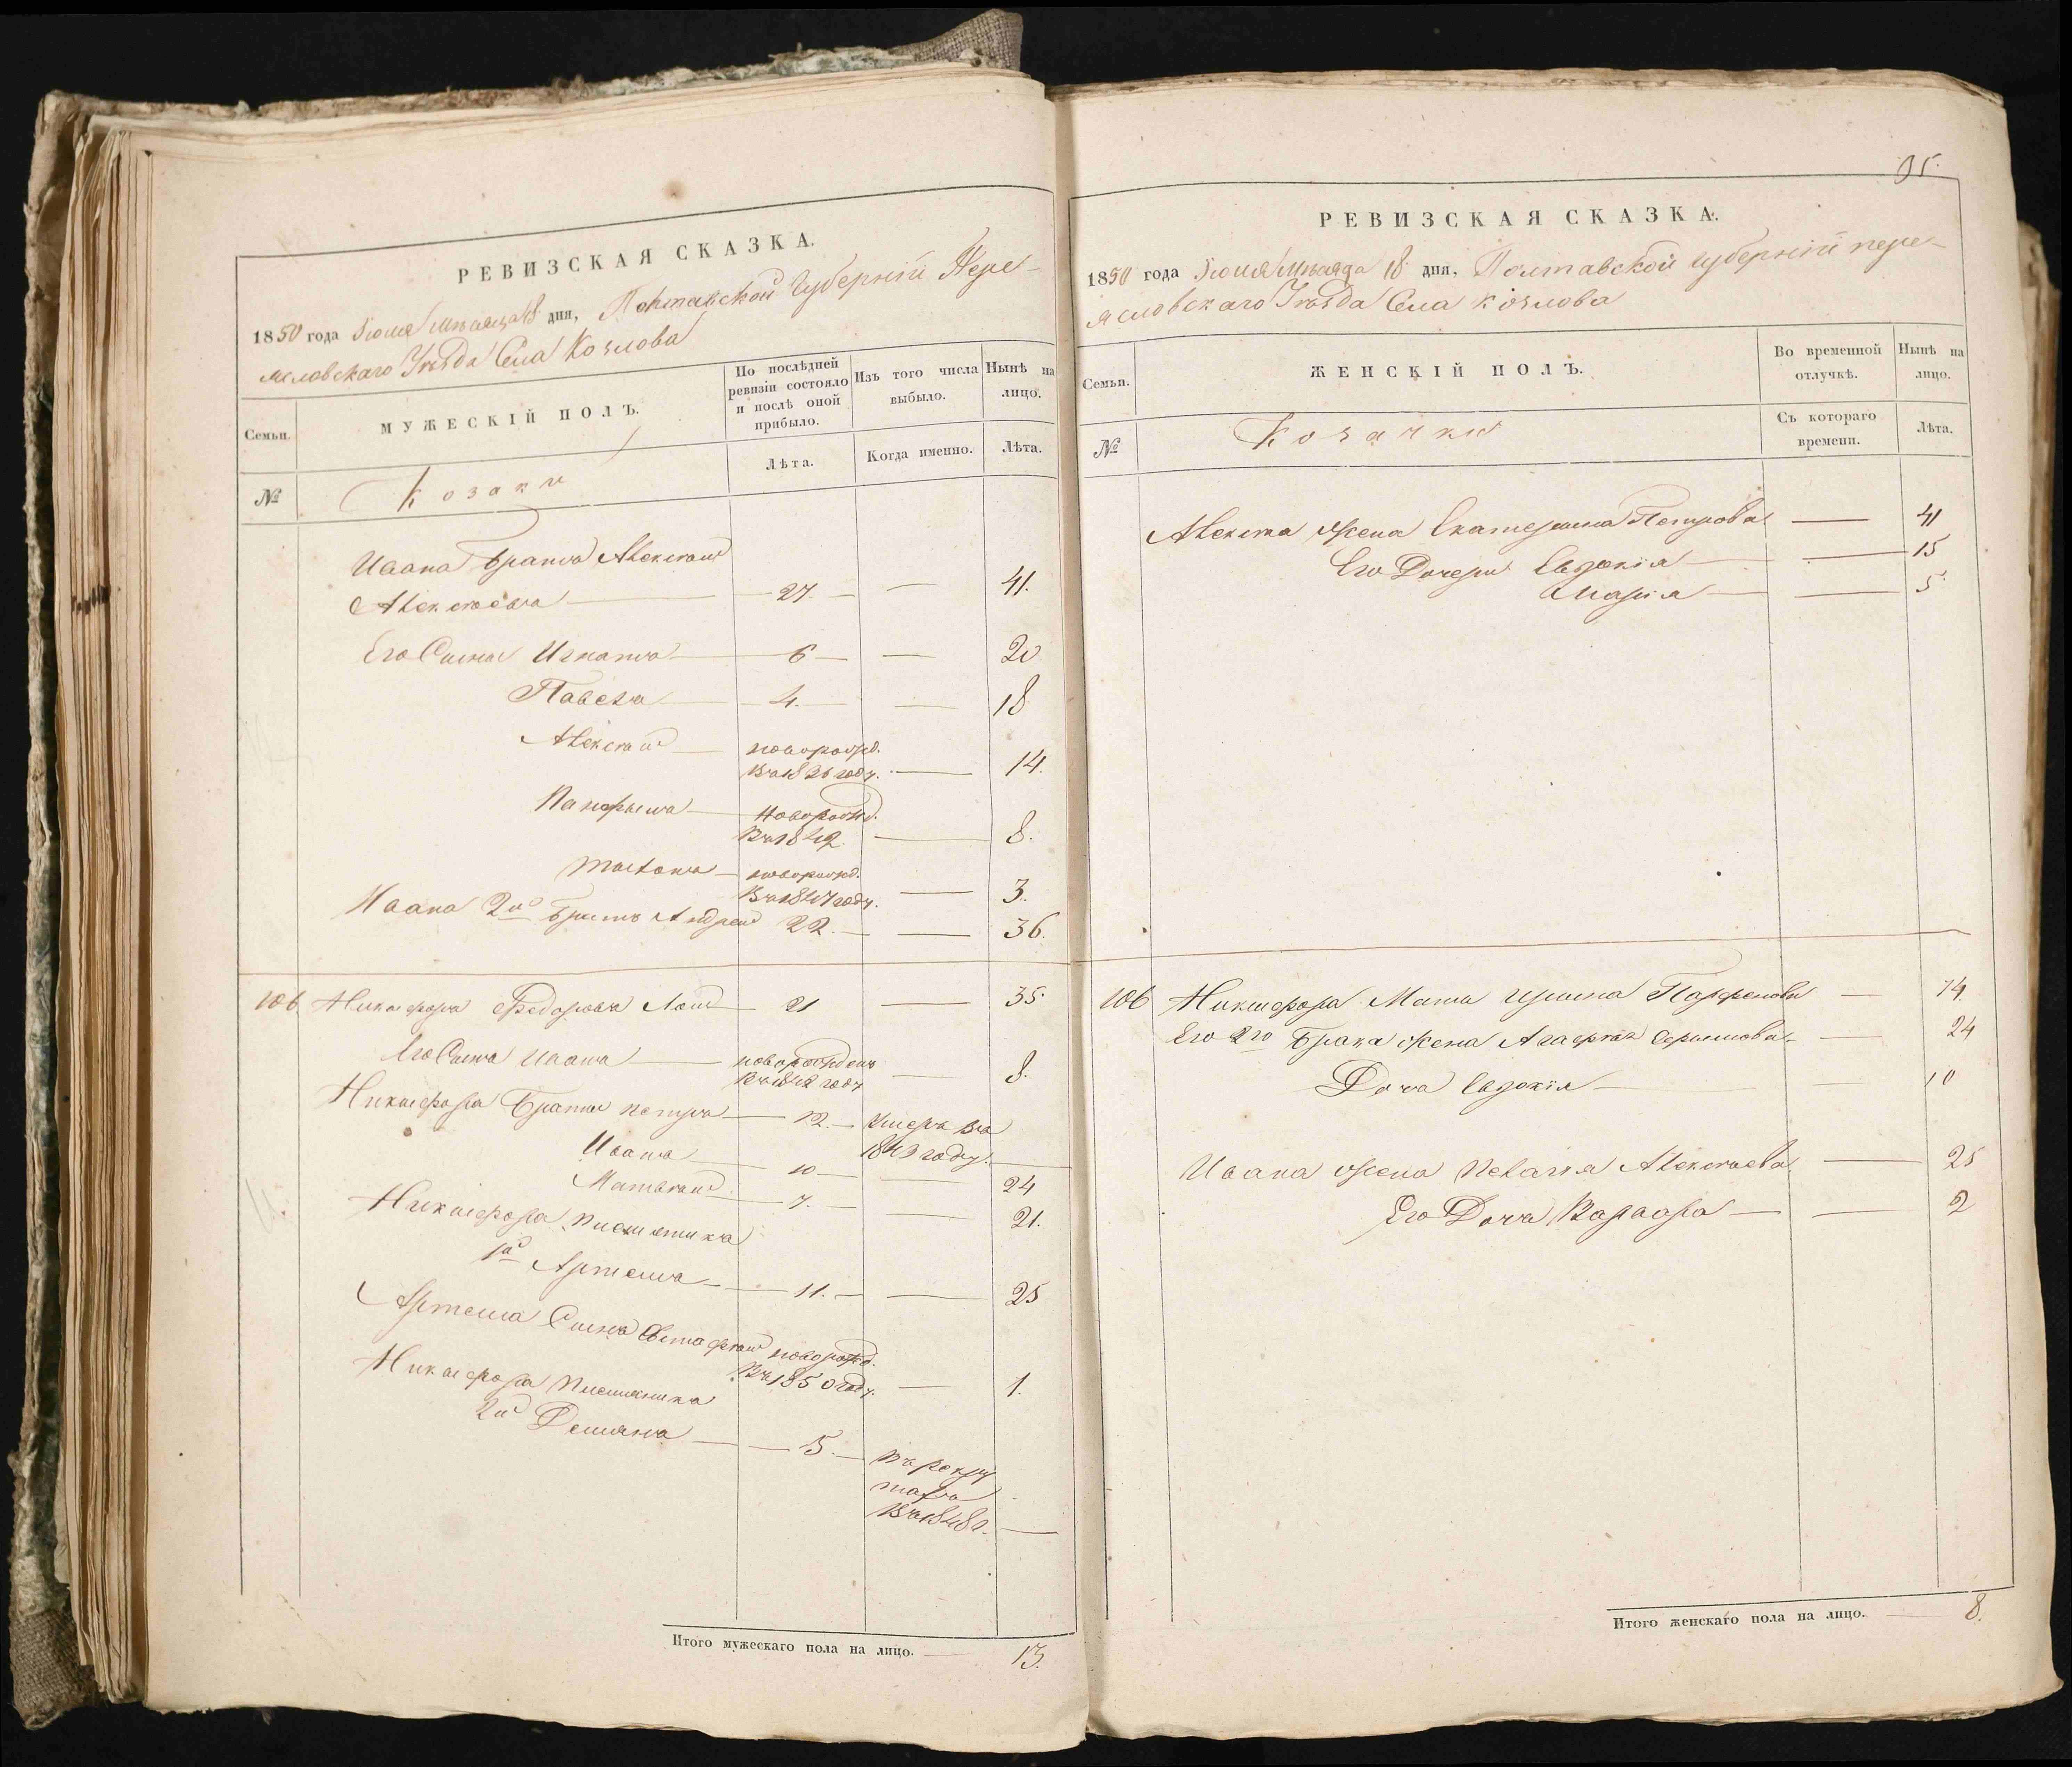 РЕВИЗСКАЯ СКАЗКА.
1850 года Іюля Мѣсяца 18 дня, Полтавской Губерніи Пере-
яславскаго Уѣзда Села Козлова
Семьи.
МУЖЕСКІЙ ПОЛЪ.
По послѣдней
ревизіи состояло
и послѣ оной
прибыло.
Изъ того числа
выбыло.
Нынѣ на
лицо.
№
Козаки
Лѣта.
Когда именно.
Лѣта.
Ивана Братъ Алексѣй
Алексѣевъ 27. 41.
Его Сыны Игнатъ 6 20
Павелъ 4. 18
Алексѣй новорожд.
Въ 1836 году. 14.
Панфилъ новорожд.
Въ 1842. 8.
новорожд.
Въ 1847 году. 3.
Ивана 2й Братъ Андрей 22. 36.
106 Никифоръ Федоровъ 21 35.
Его Сынъ Иванъ новорожденъ
Въ 1842 году 8.
Никифора Братья Петръ 12. Умеръ въ
1843 году.
Иванъ 10 24
Матвѣй 7. 21.
Никифора Племянникъ
1й Артемъ 11. 25
Артема Сынъ Евстафій новорожд.
Въ 1850 году. 1.
Никифора Племянникъ
2й Демянъ 5. Въ рекру
тахъ
Въ 1848 г.
Итого мужескаго пола на лицо. 13.
95.
РЕВИЗСКАЯ СКАЗКА.
1850 года Іюля Мѣсяца 18 дня, Полтавской Губерніи Пере-
яславскаго Уѣзда Села Козлова
Семьи.
ЖЕНСКІЙ ПОЛЪ.
Во временной
отлучкѣ.
Нынѣ на
лицо.
№
Козачки
Съ котораго
времени.
Лѣта.
Алексѣя Жена Екатерина Петрова 41
Его Дочери Евдокія 15
Марія 5.
106 Никифора Мать Ирина Парфенова 74.
Его 2го Брака жена Агафія 24
Дочь Евдокія 10
Ивана жена Пелагія Алексѣева 25
Его Дочь Варвара 2
Итого женскаго пола на лицо. 8.